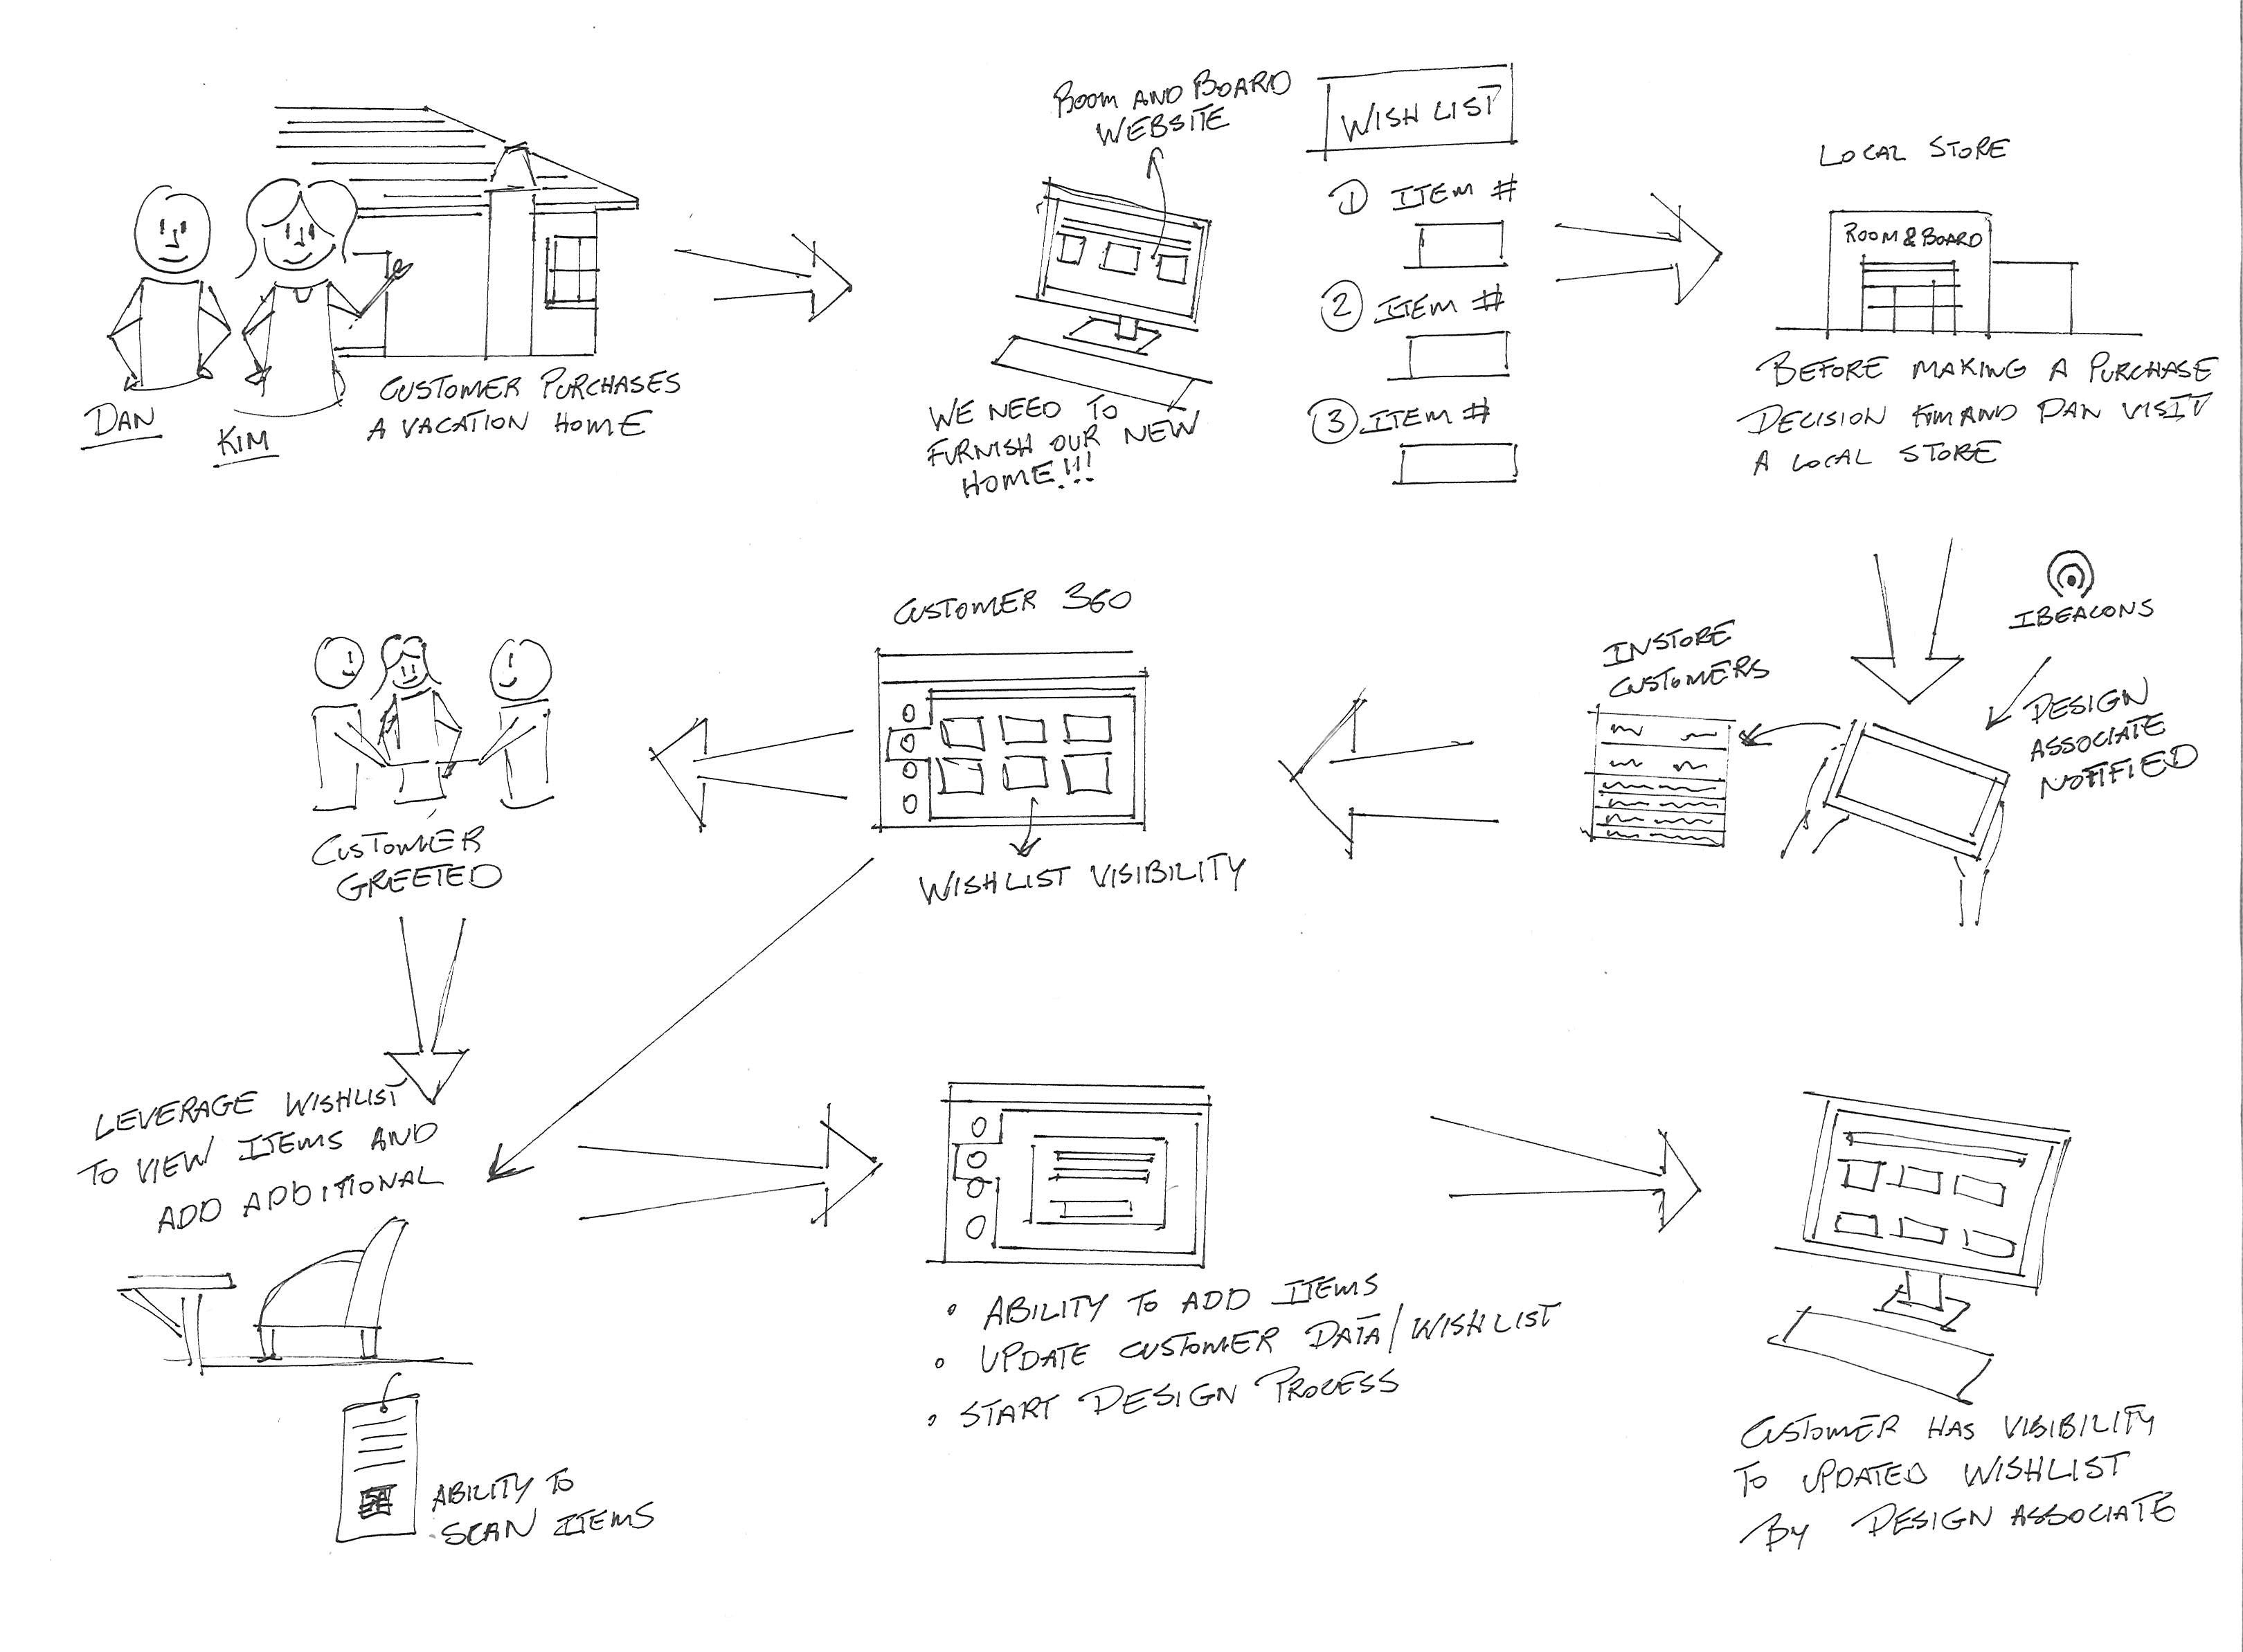 DAN
KIM
CUSTOMER PURCHASES
A VACATION HOME
ROOM AND BOARD
WEBSITE
WE NEED TO
FURNISH OUR NEW
HOME!!!
WISH LIST
1 ITEM #
2 ITEM #
3 ITEM #
LOCAL STORE
ROOM & BOARD
BEFORE MAKING A PURCHASE
DECISION KIM AND DAN VISIT
A LOCAL STORE
IBEACONS
DESIGN
ASSOCIATE
NOTIFIED
INSTORE
CUSTOMERS
CUSTOMER 360
WISHLIST VISIBILITY
CUSTOMER
GREETED
LEVERAGE WISHLIST
TO VIEW ITEMS AND
ADD ADDITIONAL
ABILITY TO
SCAN ITEMS
• ABILITY TO ADD ITEMS
• UPDATE CUSTOMER DATA/WISHLIST
• START DESIGN PROCESS
CUSTOMER HAS VISIBILITY
TO UPDATED WISHLIST
BY DESIGN ASSOCIATE